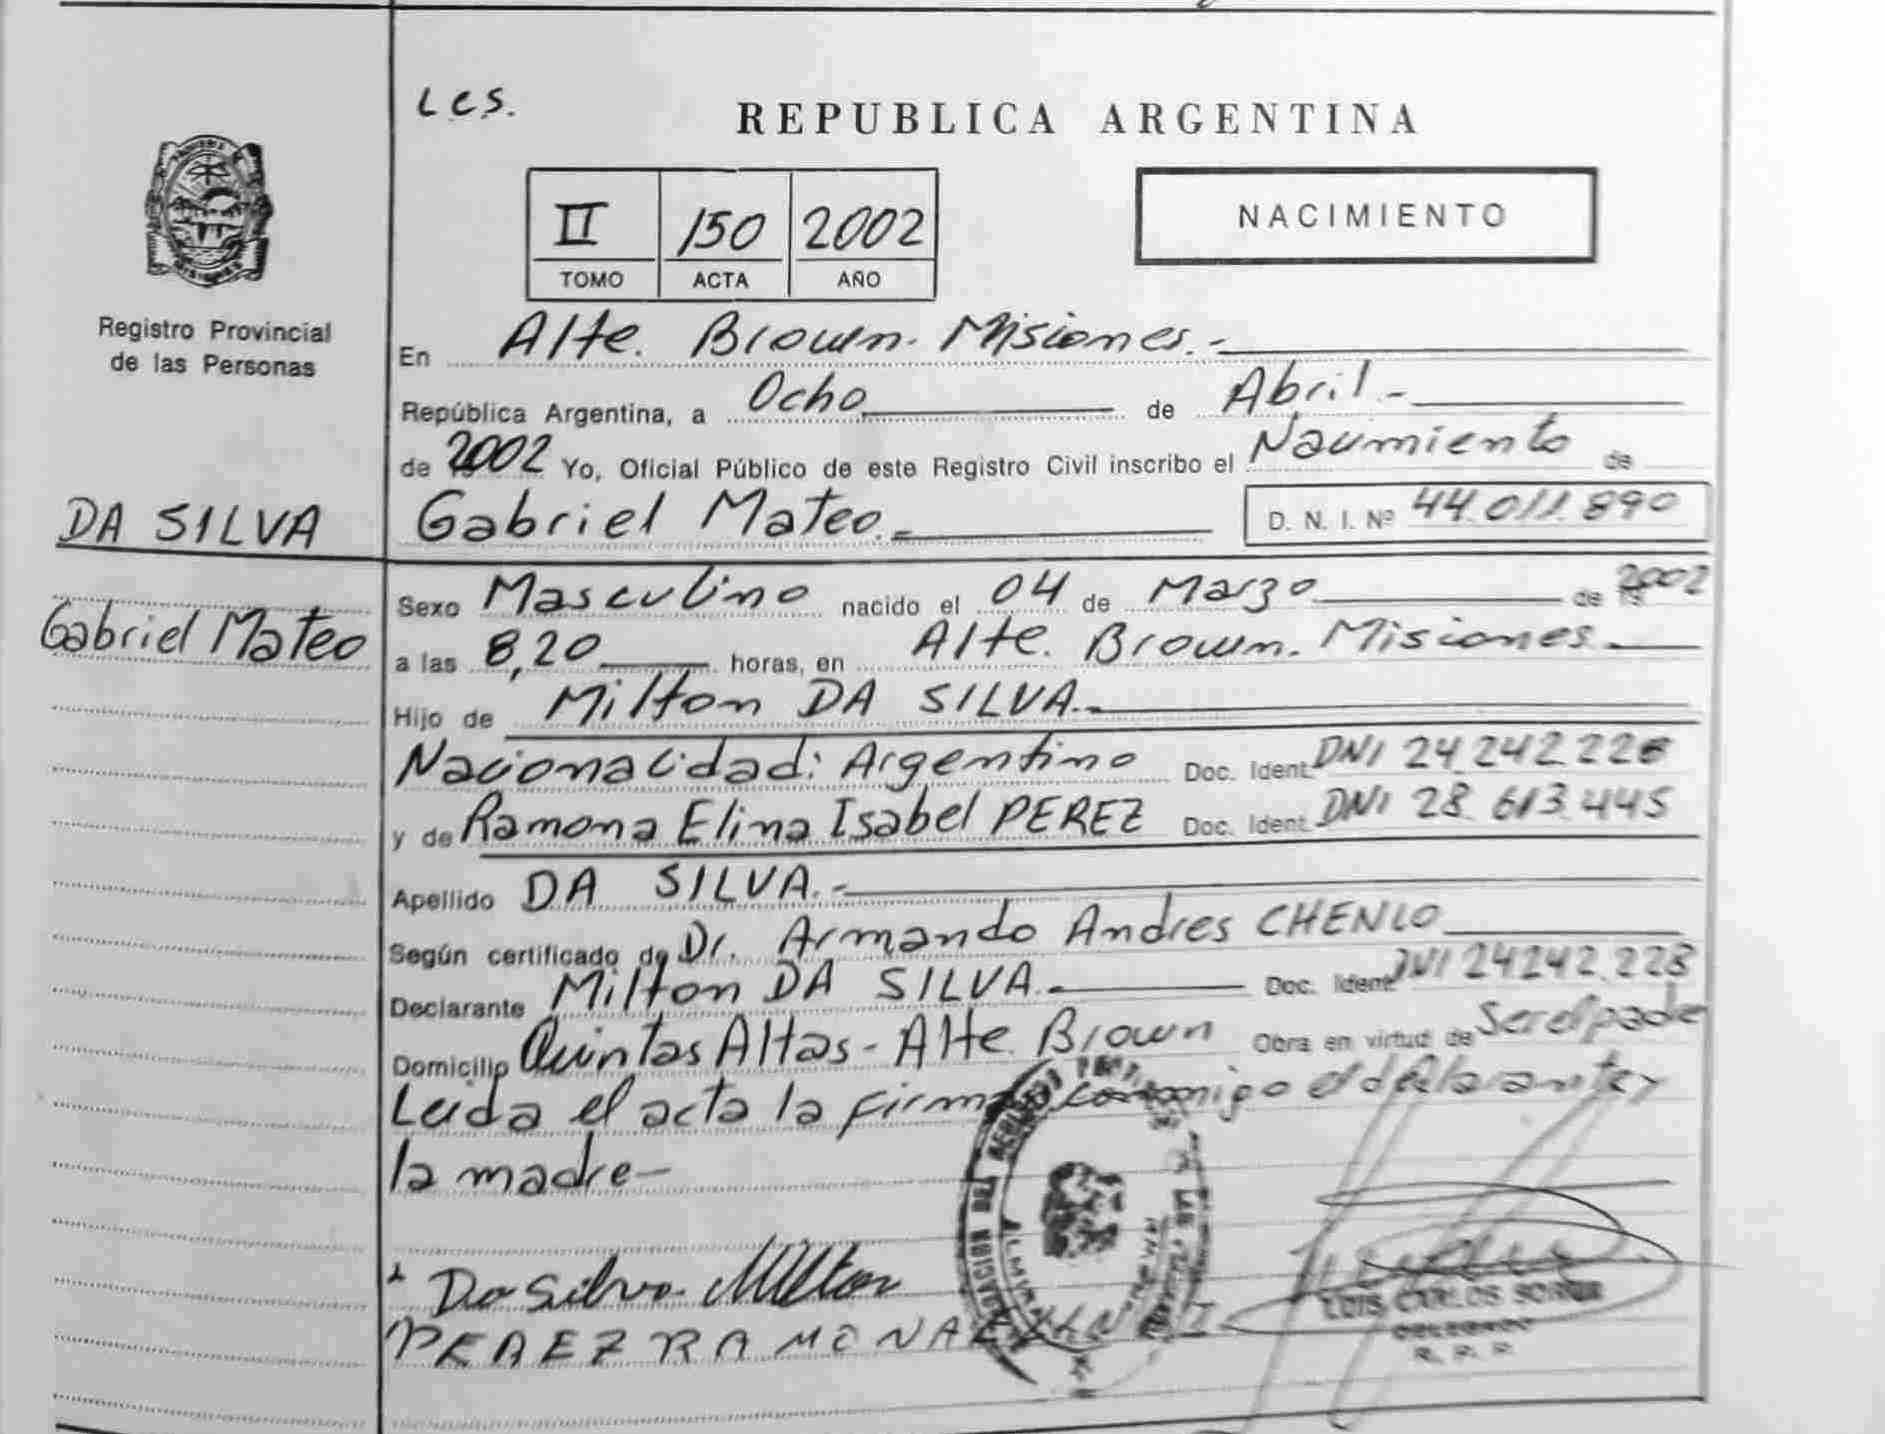 Lcs.
REPUBLICA ARGENTINA
II 150 2002
TOMO ACTA AÑO
NACIMIENTO
Registro Provincial
de las Personas
En Alte. Brown. Misiones.-
República Argentina, a Ocho de Abril.-
de 2002 Yo, Oficial Público de este Registro Civil inscribo el Nacimiento de
DA SILVA
Gabriel Mateo.- D. N. I. Nº 44.011.890
Gabriel Mateo
Sexo Masculino nacido el 04 de Marzo de 2002
a las 8,20 horas, en Alte. Brown. Misiones.
Hijo de Milton DA SILVA.-
Nacionalidad: Argentino Doc. Ident. DNI 24.242.228
y de Ramona Elina Isabel PEREZ Doc. Ident. DNI 28.613.445
Apellido DA SILVA.-
Según certificado de Dr. Armando Andres CHENLO
Declarante Milton DA SILVA.- Doc. Ident. DNI 24242.228
Domicilio Quintas Altas - Alte Brown Obra en virtud de Ser el padre
Leida el acta la firma conmigo el declarante y
la madre-
Da Silva Milton
PEREZ RAMONA
LUIS CARLOS
DELEGADO
R. P. P.